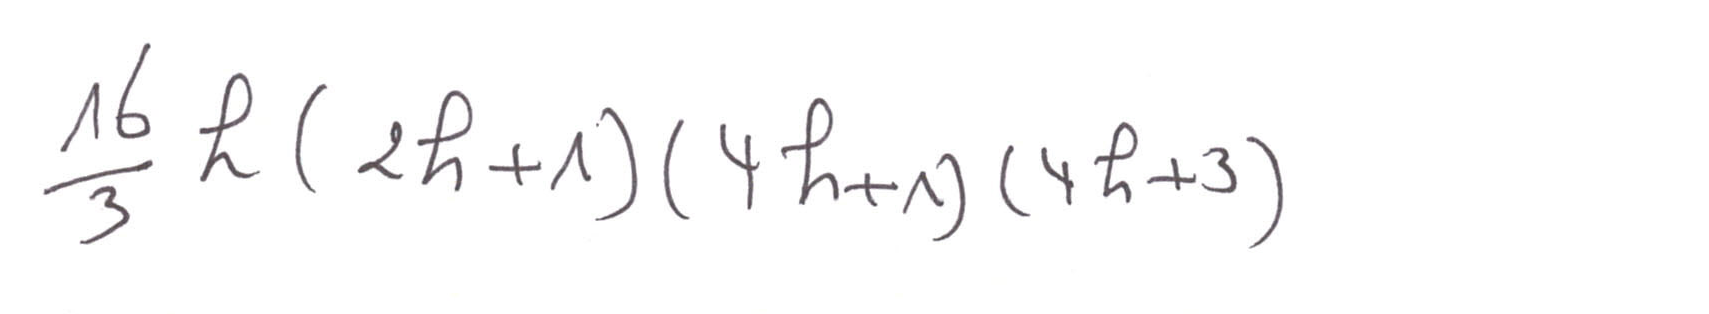 16/3 h(2h+1)(4h+1)(4h+3)